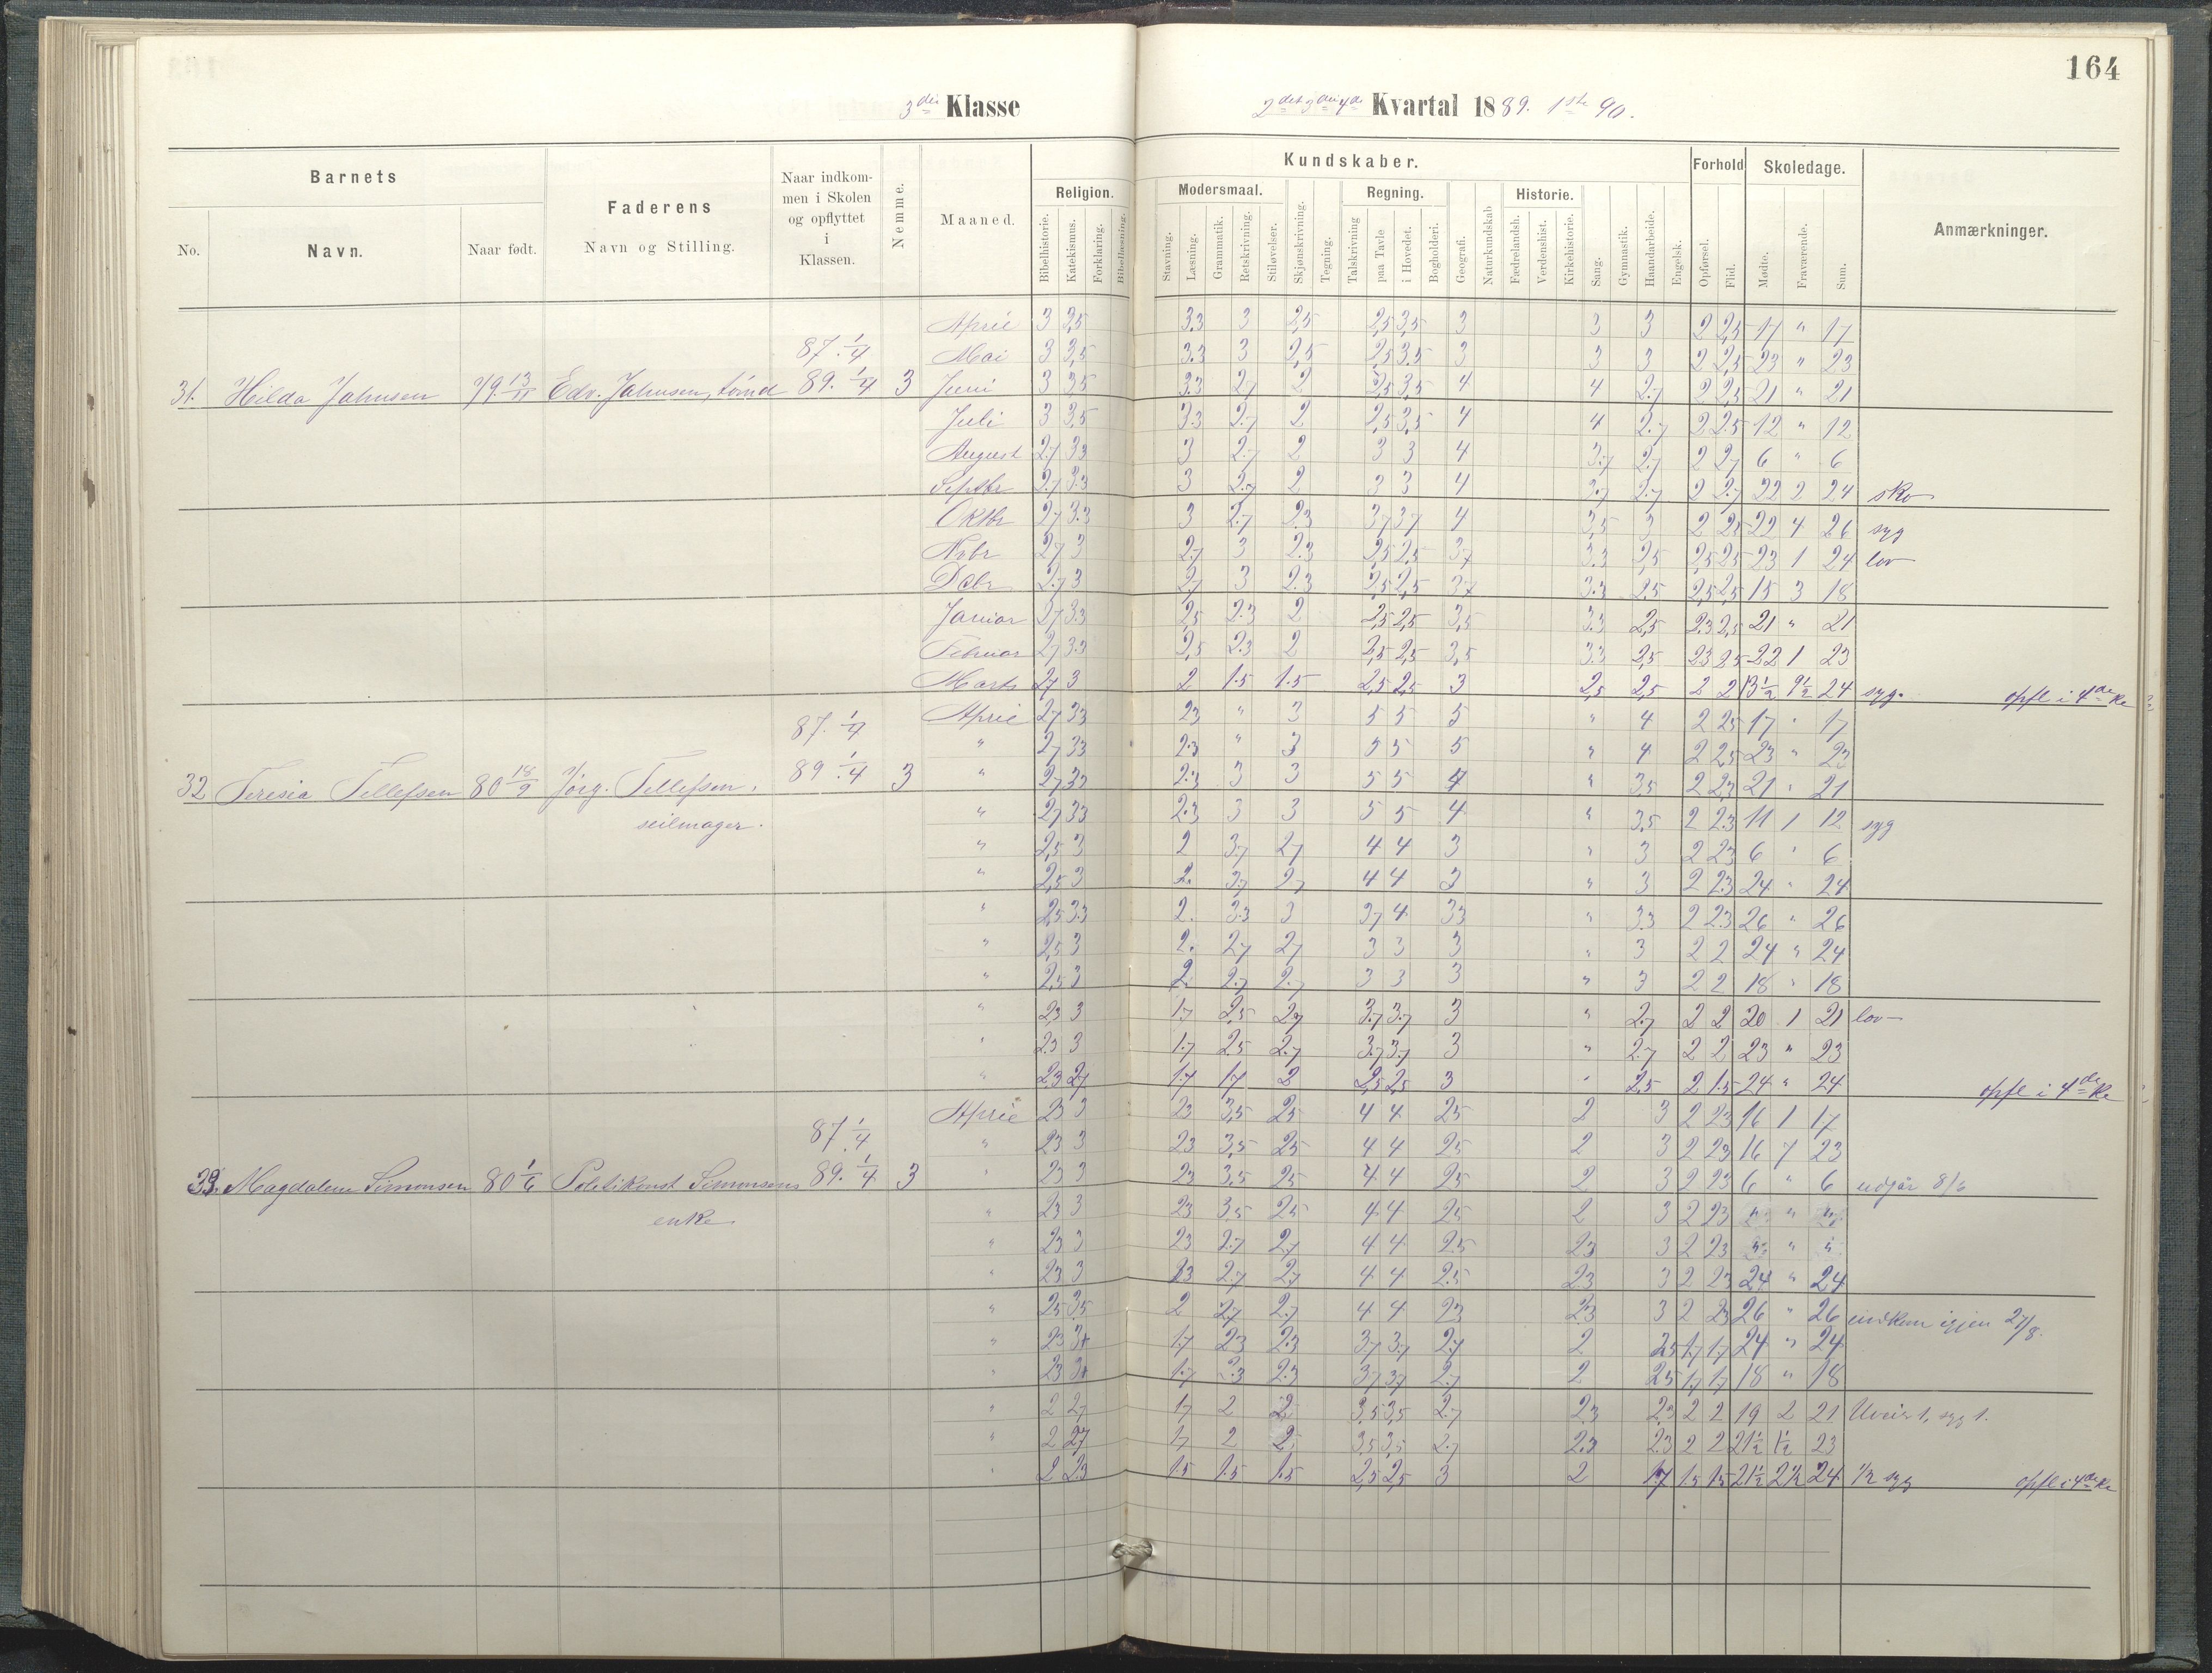 164
3die Klasse
2det 3die 4de Kvartal 1889. 1ste 90.
Barnets
Faderens
Naar indkommen i Skolen og opflyttet i Klassen.
Nemme.
Maaned.
Kundskaber.
Forhold
Skoledage.
Anmærkninger.
No. Navn. Naar født. Navn og Stilling.
Religion. Modersmaal. Regning. Historie.
Bibelhistorie. Katekismus. Forklaring. Bibellæsning. Stavning. Læsning. Grammatik. Retskrivning. Stiløvelser. Skjønskrivning. Tegning. Talskrivning paa Tavle i Hovedet. Bogholderi. Geografi. Naturkundskab Fædrelandsh. Verdenshist. Kirkehistorie. Sang. Gymnastik. Haandarbeide. Engelsk. Opførsel. Flid. Mødte. Fraværende. Sum.
April 3 3,5 3.3 3 2,5 2,5 3,5 3 3 3 2 2,5 17 " 17
87. 1/4 Mai 3 3,5 3.3 3 2,5 2,5 3.5 3 3 3 2 2,5 23 " 23
31. Hilda Jahnsen 79 13/11 Edv. Jahnsen, tømd 89. 1/4 3 Juni 3 3,5 3.3 2.7 2 2,5 3,5 4 4 2.7 2 2,5 21 " 21
Juli 3 3,5 3.3 2.7 2 2,5 3,5 4 4 2.7 2 2.5 12 " 12
August 2.7 3.3 3 2.7 2 3 3 4 3.7 2.7 2 2.7 6 " 6
Septbr 2.7 3.3 3 2.7 2 3 3 4 3.7 2.7 2 2.7 22 2 24 sko
Oktbr 2.7 3.3 3 2.7 2.3 3.7 3.7 4 3,5 3 2 2.5 22 4 26 syg
Novbr 2.7 3 2.7 3 2.3 2,5 2,5 3.7 3.3 2,5 2,5 2,5 23 1 24 lov
Decbr 2.7 3 2.7 3 2.3 2,5 2,5 3.7 3.3 2.5 2,5 2,5 15 3 18
Januar 2.7 3.3 2,5 2.3 2 2,5 2,5 3,5 3.3 2,5 2.3 2,5 21 " 21
Februar 2.7 3.3 2,5 2.3 2 2,5 2,5 3,5 3.3 2,5 2.3 2.5 22 1 23
Marts 2.7 3 2 1.5 1.5 2,5 2,5 3 2,5 2,5 2 2 13 1/2 9 1/2 24 syg. opfl i 4de kl
April 2.7 3.3 2.3 " 3 5 5 5 " 4 2 2.5 17 " 17
87. 1/4 " 2.7 3.3 2.3 " 3 5 5 5 " 4 2 2,5 23 " 23
32 Teresia Tellefsen 80 18/9 Jørg. Tellefsen, 89 1/4 3 " 2.7 3.3 2.3 3 3 5 5 4 " 3,5 2 2.3 21 " 21
seilmager. " 2.7 3.3 2.3 3 3 5 5 4 " 3,5 2 2.3 11 1 12 syg
" 2,5 3 2 3.7 2.7 4 4 3 " 3 2 2.3 6 " 6
" 2,5 3 2. 3.7 2.7 4 4 3 " 3 2 2.3 24 " 24
" 2,5 3.3 2. 3.3 3 3.7 4 3.3 " 3.3 2 2.3 26 " 26
" 2,5 3 2. 2.7 2.7 3 3 3 " 3 2 2 24 " 24
" 2,5 3 2. 2.7 2.7 3 3 3 " 3 2 2 18 " 18
" 2.3 3 1.7 2,5 2.7 3.7 3.7 3 " 2.7 2 2 20 1 21 lov
" 2.3 3 1.7 2,5 2.7 3.7 3.7 3 " 2.7 2 2 23 " 23
" 2.3 2.7 1.7 1.7 2 2,5 2,5 3 " 2,5 2 1.5 24 " 24 opfl i 4de kl
April 2.3 3 2.3 3,5 2.5 4 4 2.5 2 3 2 2.3 16 1 17
87 1/4 " 2.3 3 2.3 3,5 2.5 4 4 2.5 2 3 2 2.3 16 7 23
33. Magdalene Simonsen 80 1/6 Politikonst Simonsens 89. 1/4 3 " 2.3 3 2.3 3,5 2.5 4 4 2.5 2 3 2 2.3 6 " 6 udgår 8/6
enke " 2.3 3 2.3 3,5 2.5 4 4 2.5 2 3 2 2.3 " " "
" 2.3 3 2.3 2.7 2.7 4 4 2.5 2.3 3 2 2.3 " " "
" 2.3 3 2.3 2.7 2.7 4 4 2.5 2.3 3 2 2.3 24 " 24
" 2.5 3.5 2 2.7 2.7 4 4 2.3 2.3 3 2 2.3 26 " 26 indkom igjen 27/8.
" 2.3 3+ 1.7 2.3 2.3 3.7 3.7 2.7 2 2.5 1.7 1.7 24 " 24
" 2.3 3+ 1.7 2.3 2.3 3.7 3.7 2.7 2 2.5 1.7 1.7 18 " 18
" 2 2.7 1.7 2 2 3,5 3,5 2.7 2.3 2.3 2 2 19 2 21 Uveir 1, syg 1.
" 2 2.7 1.7 2 2 3,5 3,5 2.7 2.3 2.3 2 2 21 1/2 1 1/2 23
" 2 2.3 1.5 1.5 1.5 2,5 2,5 3 2 1.7 1.5 1.5 21 1/2 2 1/2 24 1/2 syg opfl i 4de kl